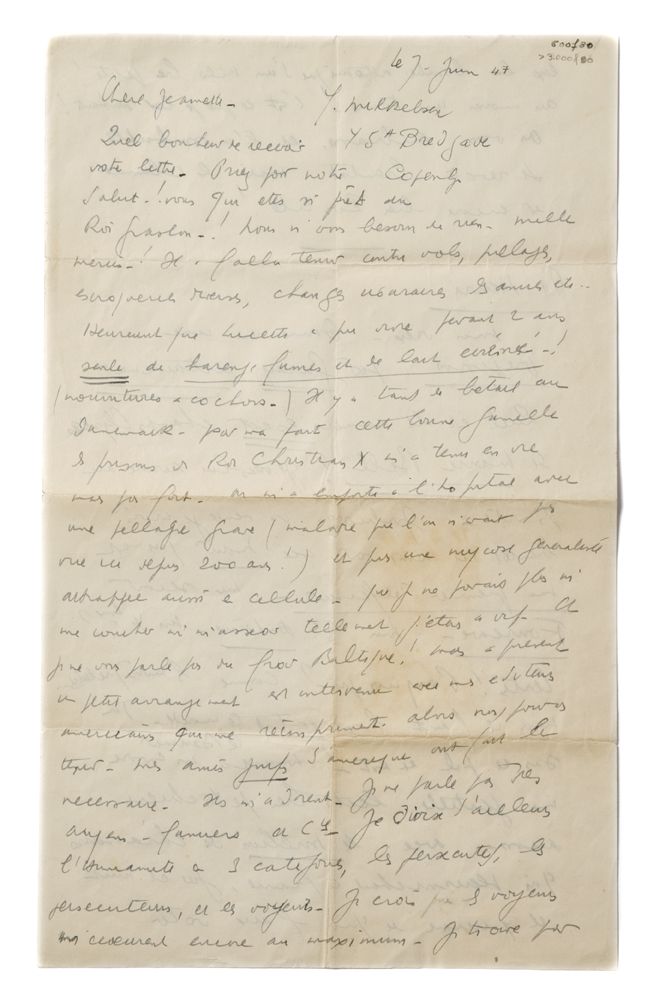 600f/80
>3.000f/80
le 7. Juin 47
Chère Jeannette - T. Mikkelsen
Quel bonheur de recevoir 45A Bredgade
votre lettre - Priez pour notre Copenh
Salut - ! vous qui êtes si près du
Roi Grallon - ! Nous n'avons besoin de rien - mille
mercis - ! Il a fallu tenir contre vols, pillages,
escroqueries diverses, changes usuraires d'amis etc..
Heureusement que Lucette a pu vivre pendant 2 ans
seule de harengs fumés et de lait écrémé - !
(nourritures à cochons -) Il y a tant de bétail au
Danemark - pour ma part cette bonne gamelle
des prisons du Roi Christian X m'a tenu en vie
mais pas fort - on m'a emporté à l'hôpital avec
une pellagre grave (maladie que l'on n'avait pas
vue ici depuis 200 ans !) et puis une mycose généralisée
attrapée aussi en cellule - que je ne pouvais plus ni
me coucher ni m'asseoir tellement j'étais à vif - Et
je ne vous parle pas du froid Baltique ! mais à présent
un petit arrangement est intervenu avec mes éditeurs
américains qui me réimpriment alors nos pauvres
mes amis juifs d'Amérique ont fait le
nécessaire - Ils m'adorent - Je ne parle pas des
aryens - et Cie - Je divise d'ailleurs
l'Humanité en 3 catégories, les persécutés, les
persécuteurs, et les voyeurs - Je crois que les voyeurs
m'écœurent encore au maximum - Je trouve par